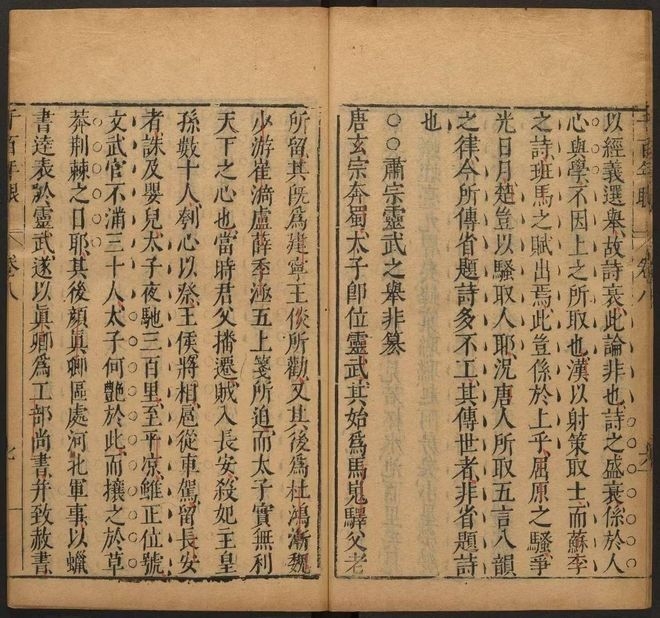 以經義選舉故詩衰此論非也詩之盛衰係於人
心與學不因上之所取也漢以射策取士而蘇李
之詩班馬之賦出焉此豈係於上乎屈原之騷爭
光日月楚豈以騷取人耶況唐人所取五言八韻
之律今所傳省題詩多不工其傳世者非省題詩
也
○○肅宗靈武之舉非篡
唐玄宗奔蜀太子卽位靈武其始爲馬嵬驛父老
所留其旣爲建寧王倓所勸又其後爲杜鴻漸魏
少游崔漪盧薛季㴱五上箋所迫而太子實無利
天下之心也當時君父播遷賊入長安殺妃王皇
孫數十人刳心以祭王侯將相扈從車駕留長安
者誅及嬰兒太子夜馳三百里至平凉雖正位號
文武官不滿三十人太子何艷於此而攘之於草
莽荆棘之日耶其後顏真卿區處河北軍事以蠟
書達表於靈武遂以眞卿爲工部尚書并致赦書
千百年眼
卷八